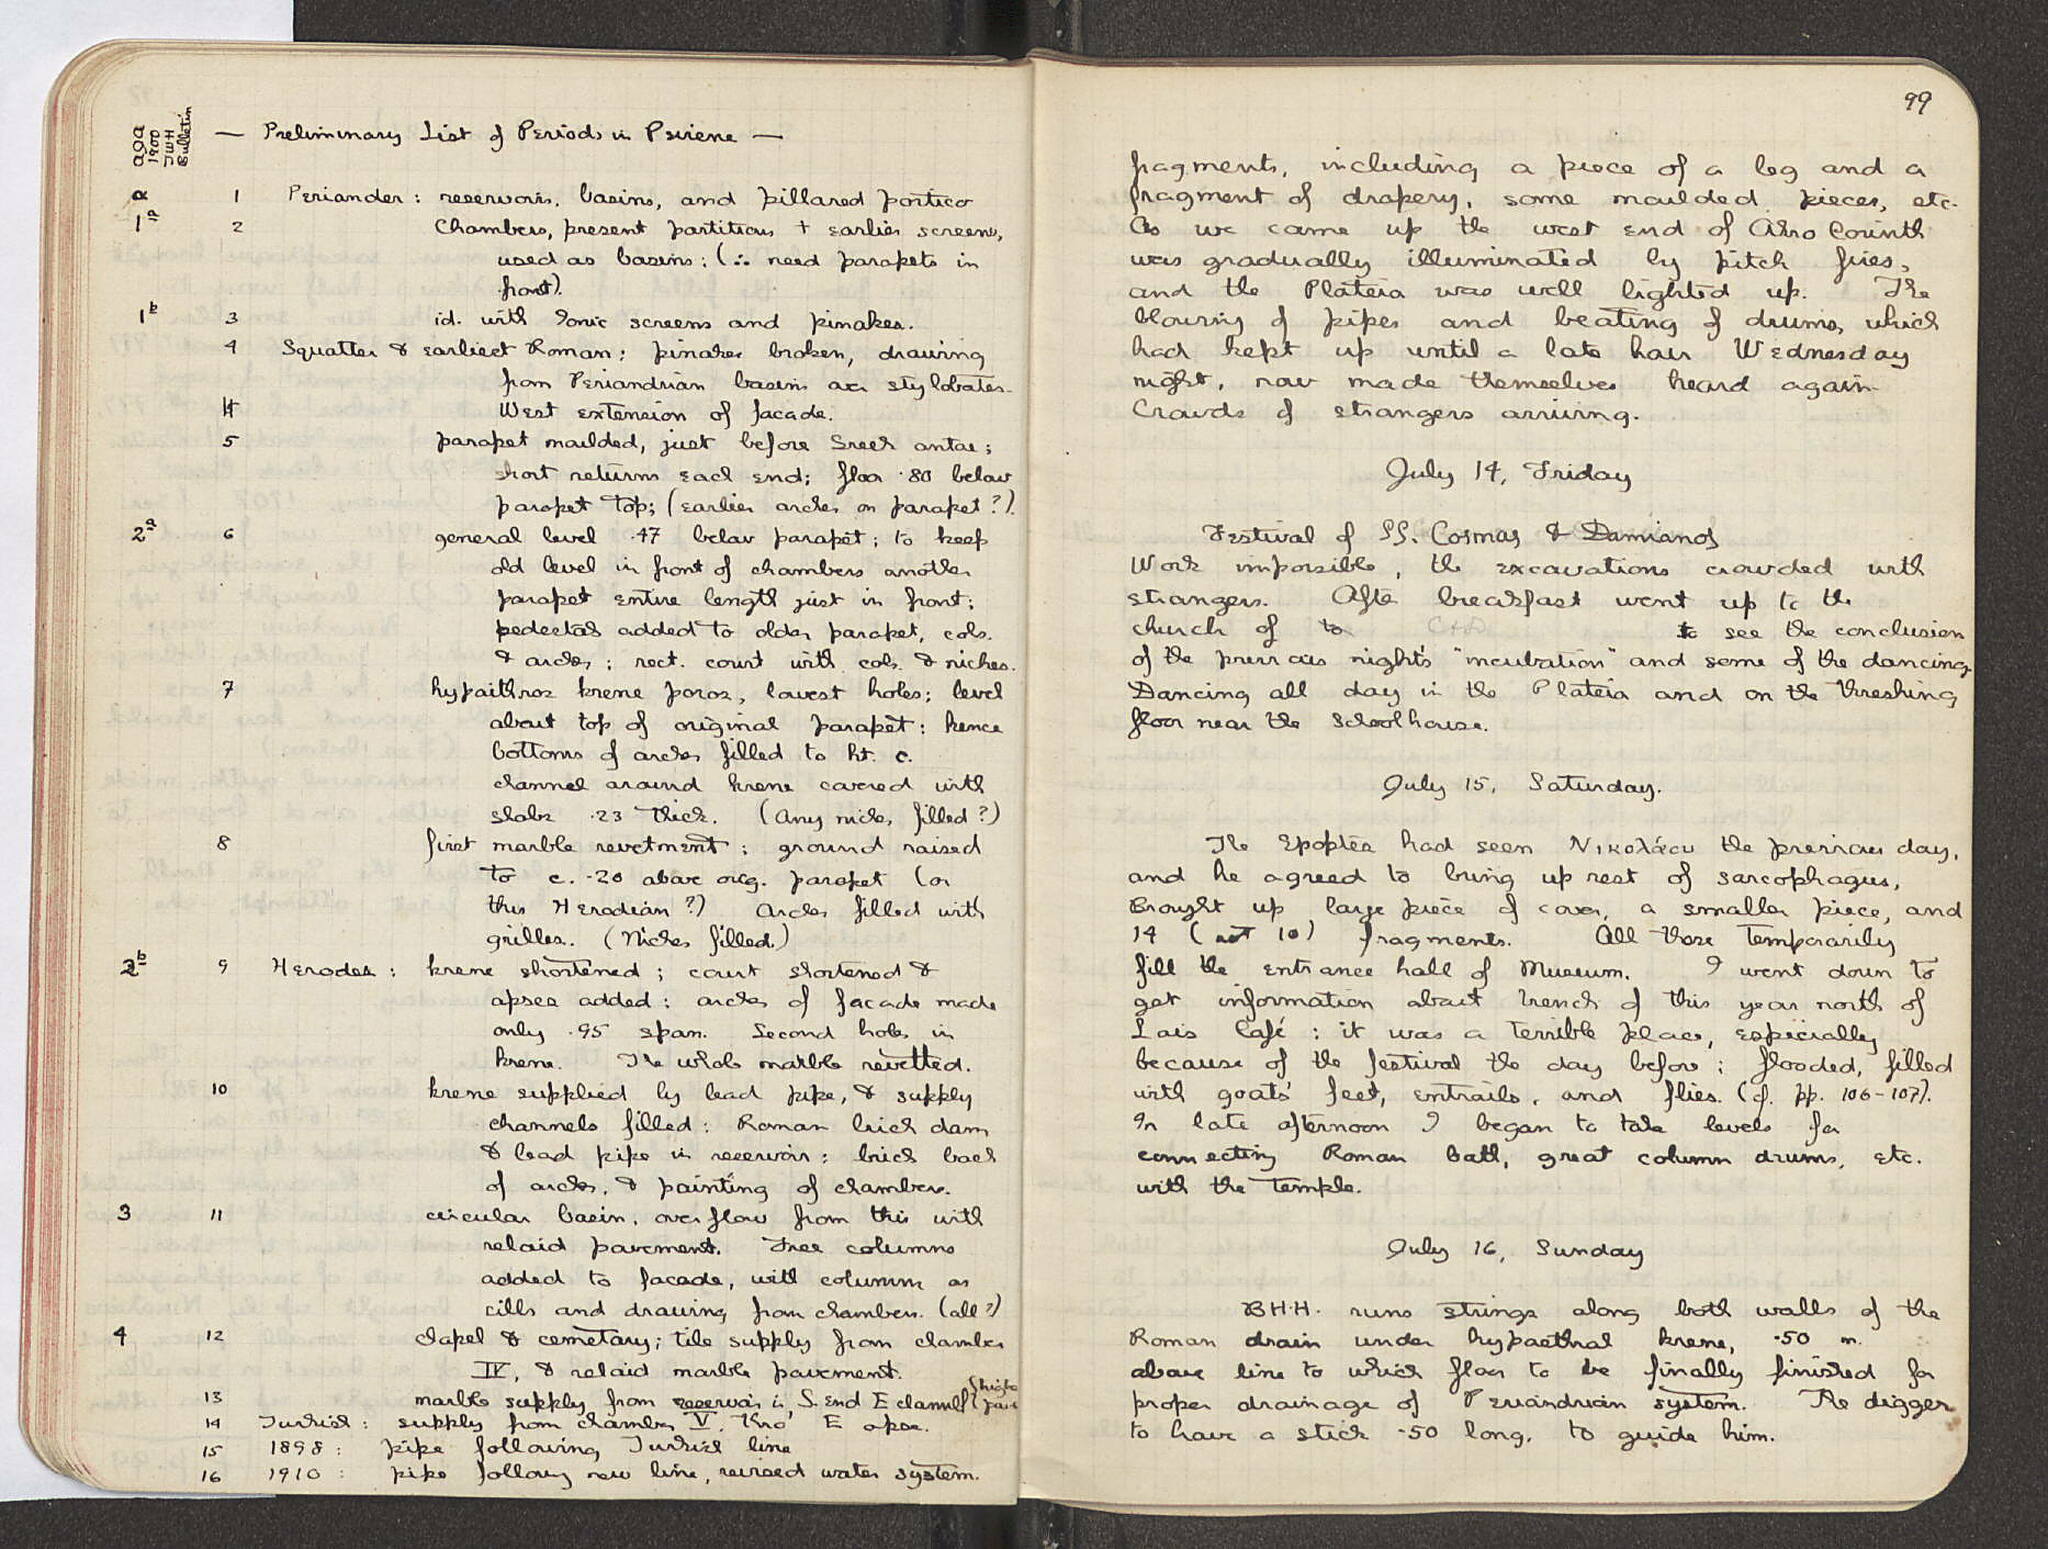 AJA
1900
TWH
Bulletin
— Preliminary List of Periods in Pirene —
α 1 Periander: reservoirs, basins, and pillared portico
1ª 2 Chambers, present partitions + earlier screens,
used as basins: (∴ need parapets in
front).
1ᵇ 3 id. with Ionic screens and pinakes.
4 Squatter & earliest Roman: pinakes broken, drawing
from Periandrian basins as stylobates.
West extension of facade.
5 parapet moulded, just before Greek antae;
short returns each end; floor .80 below
parapet top; (earlier arches on parapet?).
2ª 6 general level .47 below parapet; to keep
old level in front of chambers another
parapet entire length just in front;
pedestals added to older parapet, cols.
& arches; rect. court with cols. & niches.
7 hypaithros krene poros, lowest holes; level
about top of original parapet: hence
bottoms of arches filled to ht. c.
channel around krene covered with
slabs .23 thick. (Any niches filled?)
8 first marble revetment: ground raised
to c. .20 above orig. parapet (or
this Herodian?) Arches filled with
grilles. (Niches filled.)
2ᵇ 9 Herodes: krene shortened; court shortened &
apses added: arches of facade made
only .95 span. Second holes in
krene. The whole marble revetted.
10 krene supplied by lead pipe, & supply
channels filled: Roman brick dam
& lead pipe in reservoir: brick back
of arches, & painting of chambers.
3 11 circular basin, overflow from this with
relaid pavement. Free columns
added to facade, with columns as
sills and drawing from chambers. (all?)
4 12 chapel & cemetary; tile supply from chamber
IV, & relaid marble pavement.
13 marble supply from reservoir in S. End E channel
14 Turkish: supply from chamber V. thro' E apse.
15 1898: pipe following Turkish line
16 1910: pipe follows new line, revised water system.
99
fragments, including a piece of a leg and a
fragment of drapery, some moulded pieces, etc.
As we came up the west end of Akro Corinth
was gradually illuminated by pitch fires,
and the Plateia was well lighted up. The
blowing of pipes and beating of drums, which
had kept up until a late hour Wednesday
night, now made themselves heard again.
Crowds of strangers arriving.
July 14, Friday
Festival of SS. Cosmas & Damianos
Work impossible, the excavations crowded with
strangers. After breakfast went up to the
church of to C+D to see the conclusion
of the previous night's "incubation" and some of the dancing.
Dancing all day in the Plateia and on the threshing
floor near the schoolhouse.
July 15, Saturday.
The Epoptes had seen Νικολάου the previous day,
and he agreed to bring up rest of sarcophagus,
Brought up large piece of cover, a smaller piece, and
14 (not 10) fragments. All these temporarily
fill the entrance hall of Museum. I went down to
get information about trench of this year north of
Lais Café: it was a terrible place, especially
because of the festival the day before; flooded, filled
with goats' feet, entrails, and flies. (cf. pp. 106-107).
In late afternoon I began to take levels for
connecting Roman bath, great column drums, etc.
with the temple.
July 16, Sunday
B.H.H. runs strings along both walls of the
Roman drain under hypaethral krene, .50 m.
above line to which floor to be finally finished for
proper drainage of Periandrian system. The digger
to have a stick .50 long, to guide him.